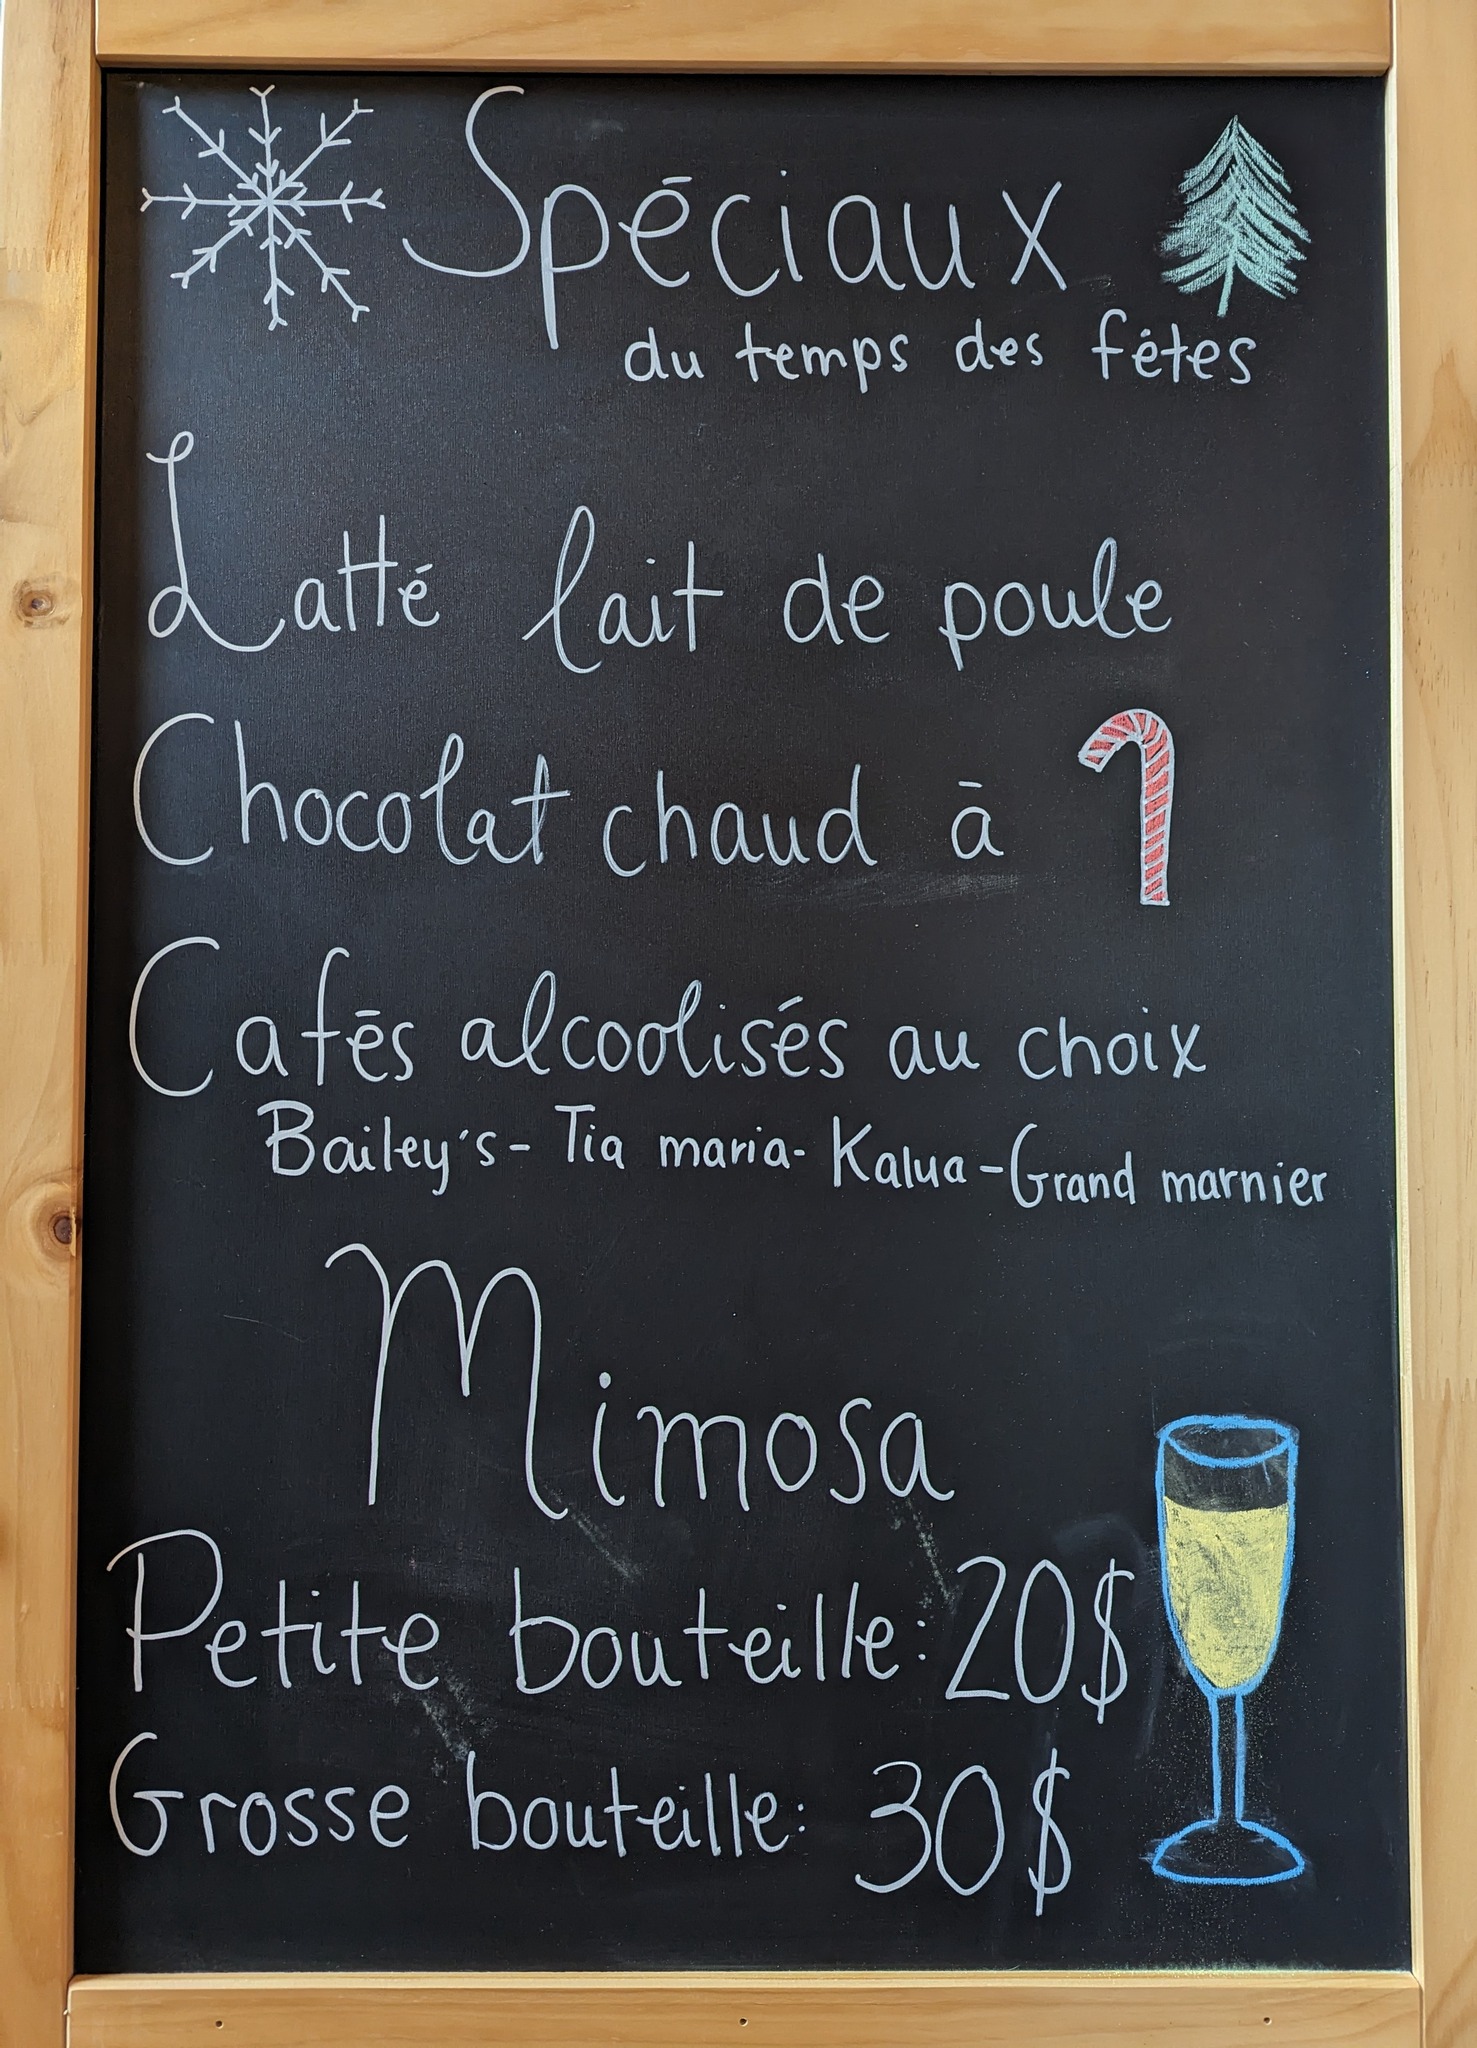 Spéciaux
du temps des fêtes
Latté lait de poule
Chocolat chaud à
Cafés alcoolisés au choix
Bailey's - Tia maria - Kalua - Grand marnier
Mimosa
Petite bouteille: 20$
Grosse bouteille: 30$